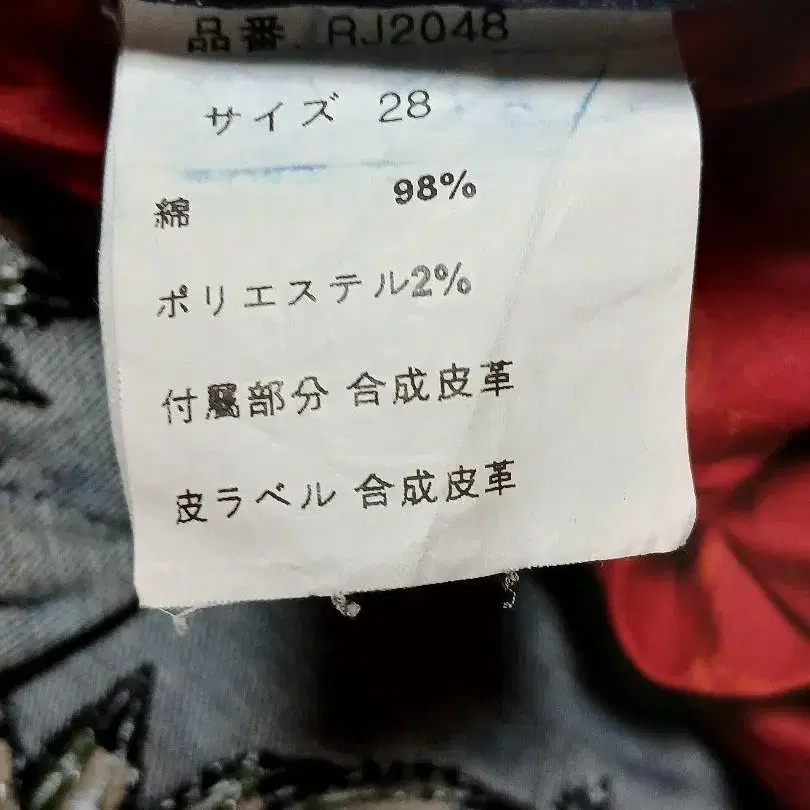 品番 RJ2048
サイズ 28
綿 98%
ポリエステル2%
付属部分 合成皮革
皮ラベル 合成皮革